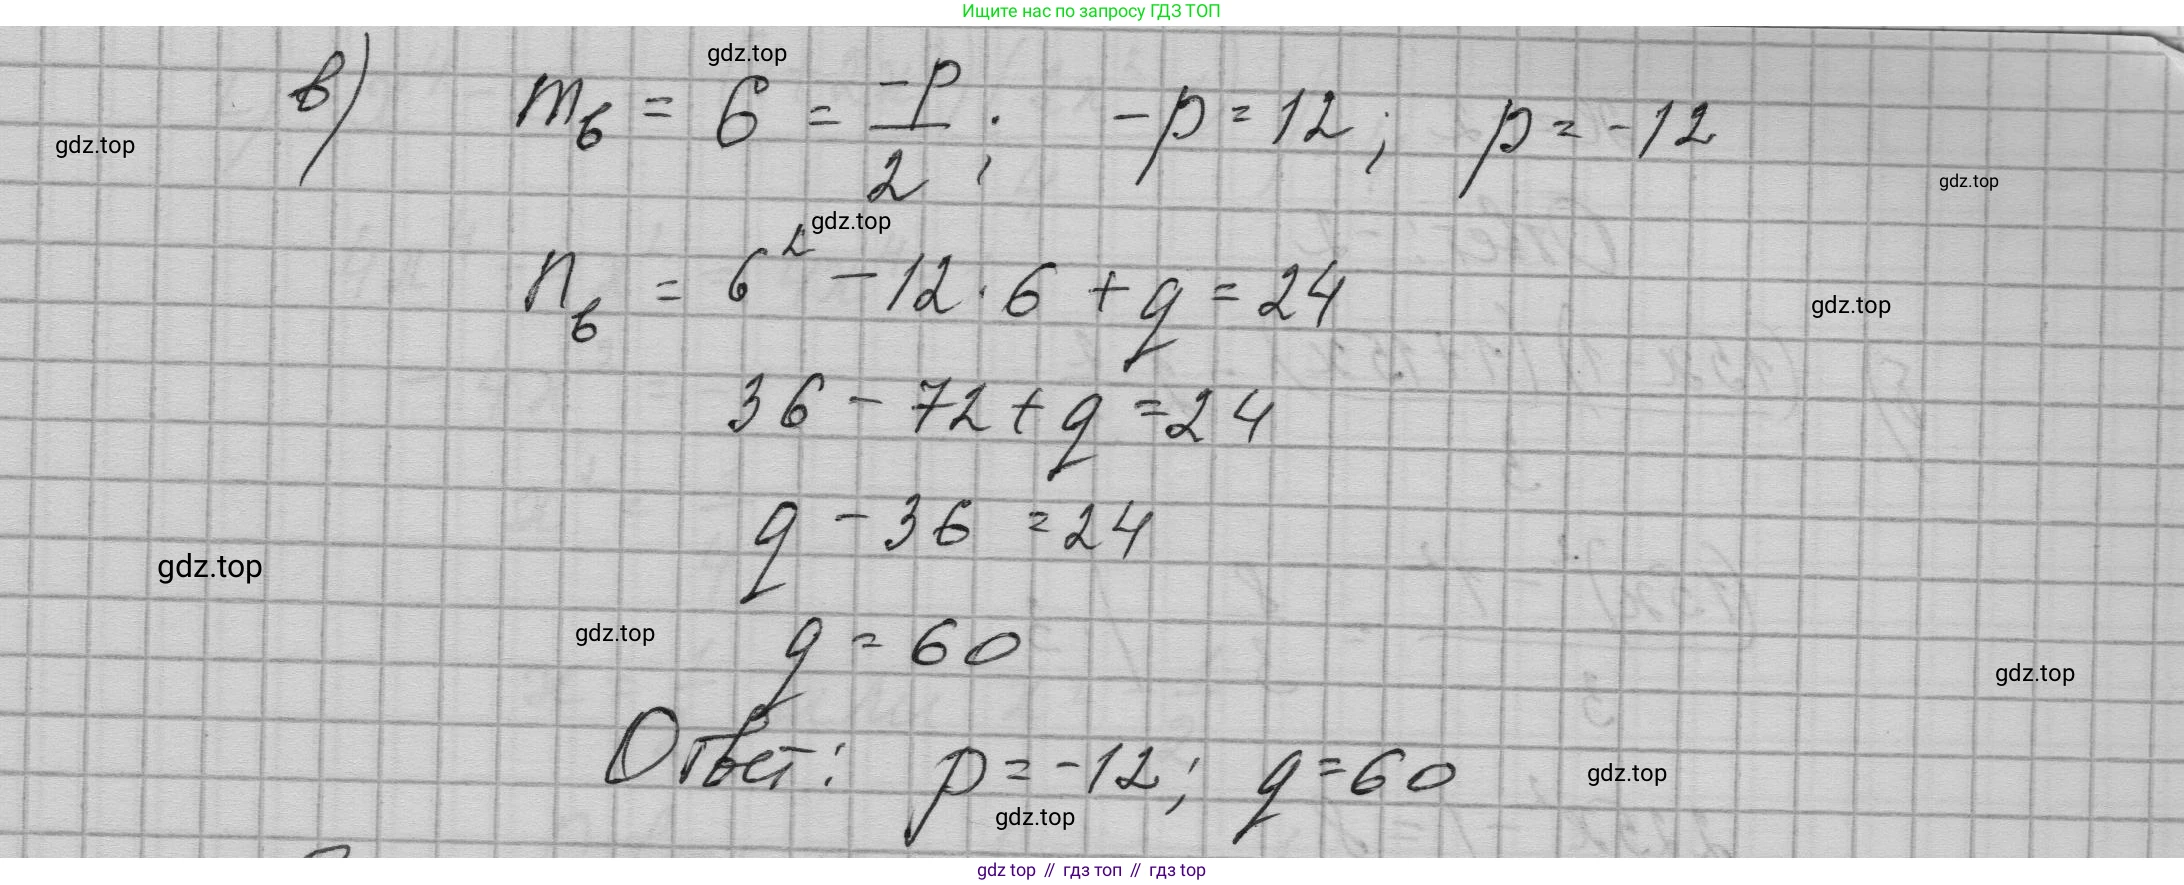 Ищите нас по запросу ГДЗ ТОП
в) m_в = 6 = -p/2; -p = 12; p = -12
n_в = 6² - 12 · 6 + q = 24
36 - 72 + q = 24
q - 36 = 24
q = 60
Ответ: p = -12; q = 60
gdz.top
gdz.top
gdz.top
gdz.top
gdz.top
gdz.top
gdz.top
gdz.top
gdz.top
gdz.top
gdz top // гдз топ // гдз top